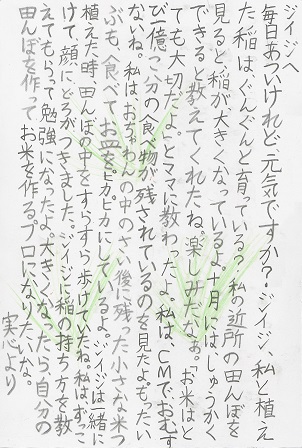 ジイジへ
毎日あついけれど、元気ですか?ジイジ、私と植え
た稲は、ぐんぐんと育っている?私の近所の田んぼを
見ると稲が大きくなっているよ。十月には、しゅうかく
できると教えてくれたね。楽しみだなぁ。お米はと
ても大切だよ。とママに教わったよ。私は、CMでおむす
び一億こ分の食べ物が残されているのを見たよ。もったい
ないね。私は、おちゃわんの中のさい後に残った小さな米つ
ぶも、食べてお皿をピカピカにしているよ。ジイジは一緒に
植えた時、田んぼの中をすらすら歩けていたね。私は、ずっこ
けて、顔にどろがつきました。ジイジに稲の持ち方を教
えてもらって勉強になったよ。大きくなったら、自分の
田んぼを作ってお米を作るプロになりたいな。
実心より